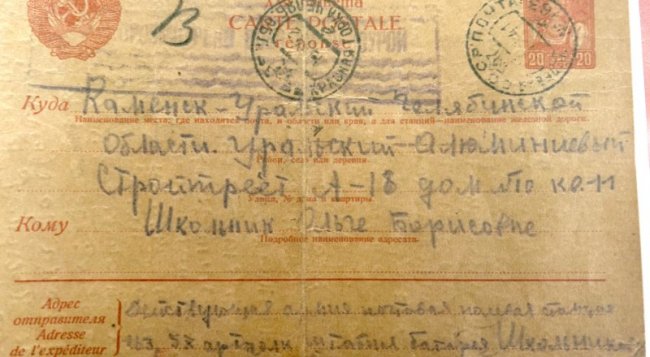 CARTE POSTALE
20 20
В
Куда Каменск-Уральский Челябинской
Наименование места, где находится почта, и области или края, а для станций—наименование железной дороги.
области. Уральский Алюминиевый
Район, село или деревня.
А-18 дом №10 ко-н
Улица, № дома и квартиры.
Кому Школьник Ольге Борисовне
Подробное наименование адресата.
Адрес отправителя
Действующая армия полевая почтовая станция
Adresse de l'expéditeur
артполк штабная батарея Школьников